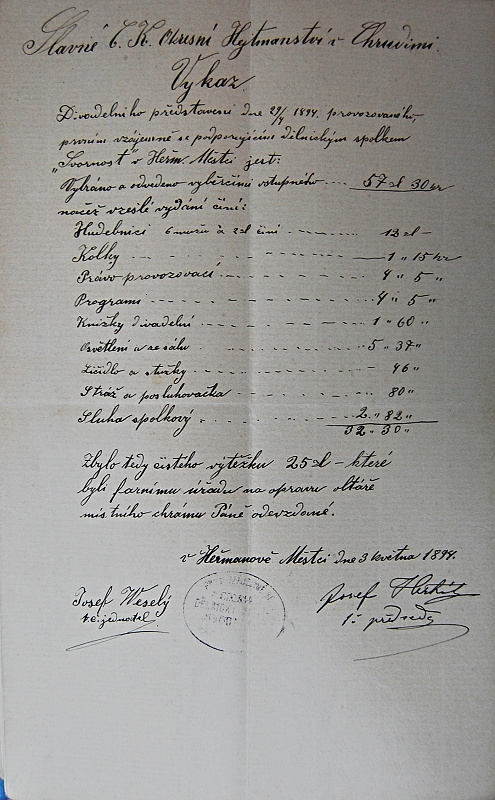 Slavné C. K. Okresní Hejtmanství v Chrudimi.
Výkaz
Divadelního představení dne 29/4 1894. provozovaného,
prvním vzájemně se podporujícím dělnickým spolkem
„Svornost" v Heřm. Městci jest:
Vybráno a odvedeno výběrčími vstupného .... 57 zl 30 kr
načež vzešlé vydání činí:
Hudebníci 6 mužů á 2 zl činí ---- 12 zl –
Kolky ---- 1 " 15 kr
Právo provozovací ---- 4 " 5 "
Programi ---- 4 " 5 "
Knížky divadelní ---- 1 " 60 "
Osvětlení a ze sálu ---- 5 " 37 "
Líčidlo a stužky ---- 46 "
Stráž a posluhovačka ---- 80 "
Sluha spolkový ---- 2 " 82 "
32 " 30 "
Zbylo tedy čistého výtěžku 25 zl – které
byli farnímu úřadu na opravu oltáře
místního chrámu Páně odevzdané.
v Heřmanově Městci dne 3 května 1894.
Josef Weselý
t. č. jednatel
Josef
t. č. předseda